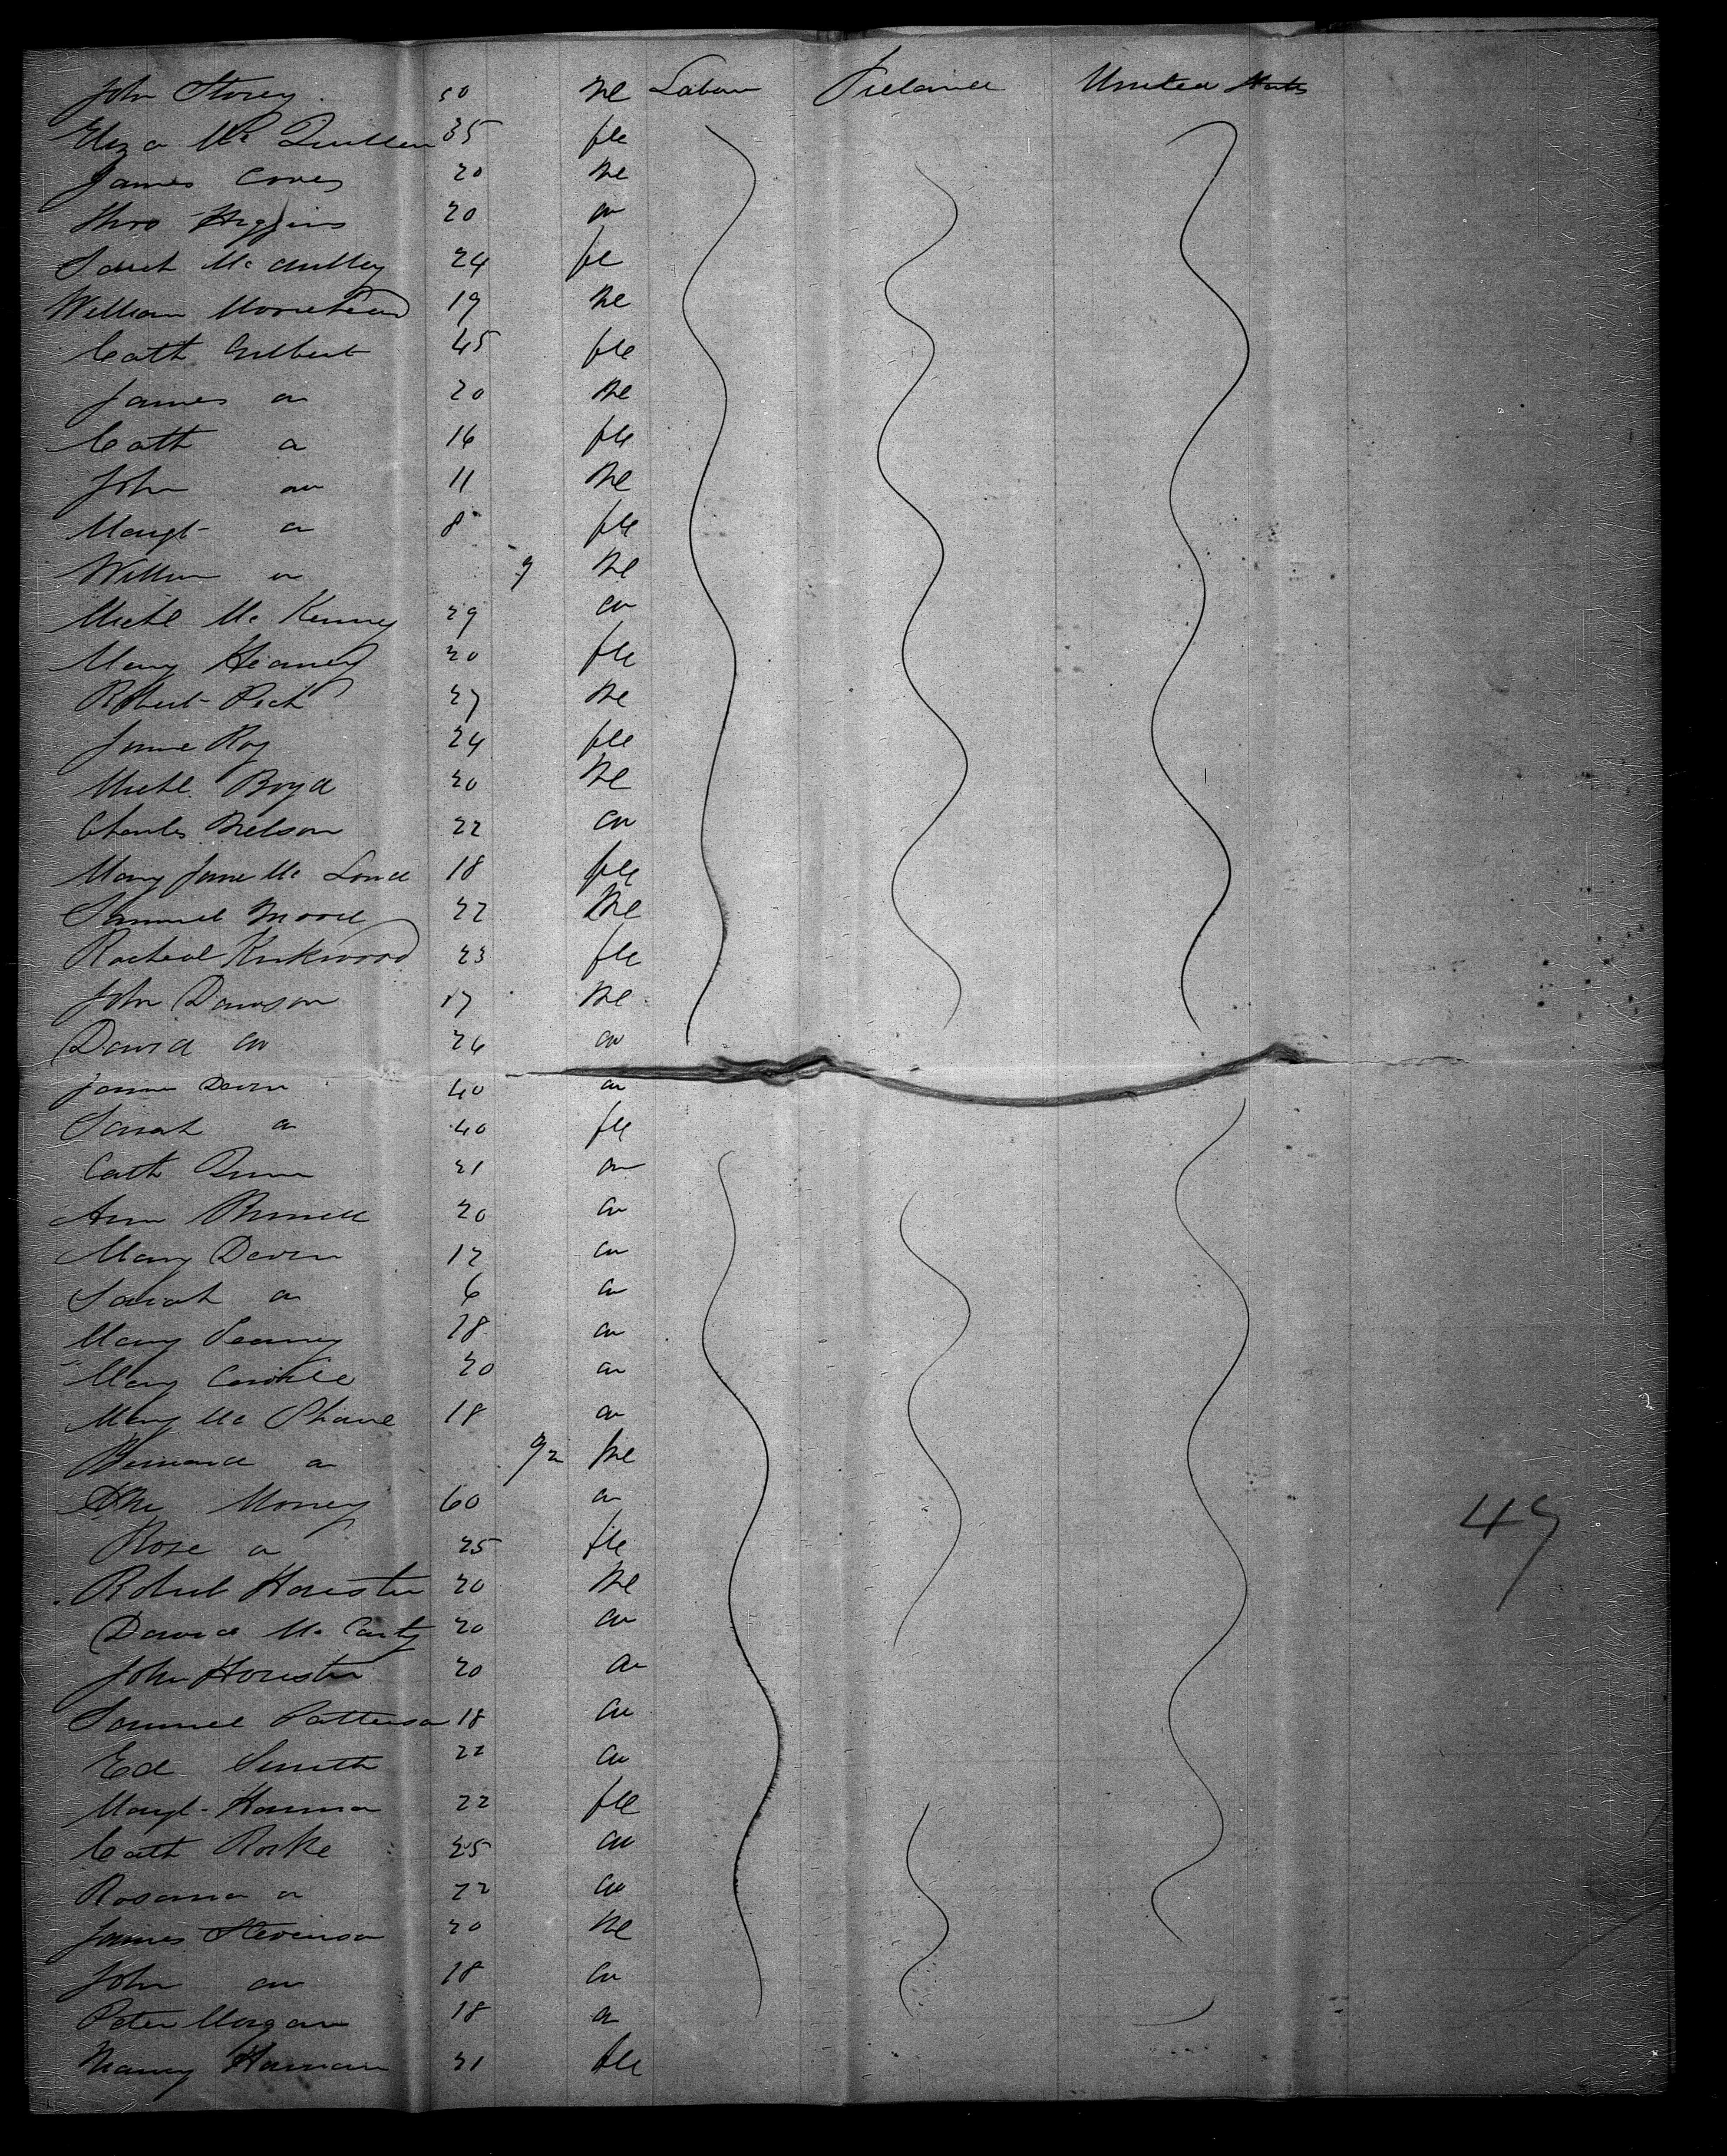 John Storey 50 Me Labour Ireland United States
Eliza Mc Quillen 35 fle
James Coney 20 Me
Thos Higgins 20 do
Sarah Mc Aulley 24 fle
William Moorehead 19 Me
Cath Gilbert 45 fle
James do 20 Me
Cath do 16 fle
John do 11 Me
Margt do 8 fle
William do 9 Me
Michl Mc Kenny 29 do
Mary Heaney 20 fle
Robert Peck 27 Me
Jane Roy 24 fle
Michl Boyd 20 Me
Charles Nelson 22 do
Mary Jane Mc 18 fle
Samuel Moore 22 Me
Racheal Kirkwood 23 fle
John Dawson 17 Me
David do 26 do
James Devin 40 do
Sarah do 40 fle
Cath Quinn 21 do
Ann 20 do
Mary Devin 12 do
Sarah do 6 do
Mary 18 do
Mary 20 do
Mary Mc Shane 18 do
Bernard do 9/12 Me
Money 60 do
Rose do 25 fle
Robert Houston 20 Me
David Mc Carty 20 do
John Houston 20 do
Samuel Patterson 18 do
Ed Smith 22 do
Margt Hanna 22 fle
Cath Rorke 25 do
Rosanna do 22 do
James Stevenson 20 Me
John do 18 do
Peter Morgan 18 do
Nancy Hannan 21 fle
49